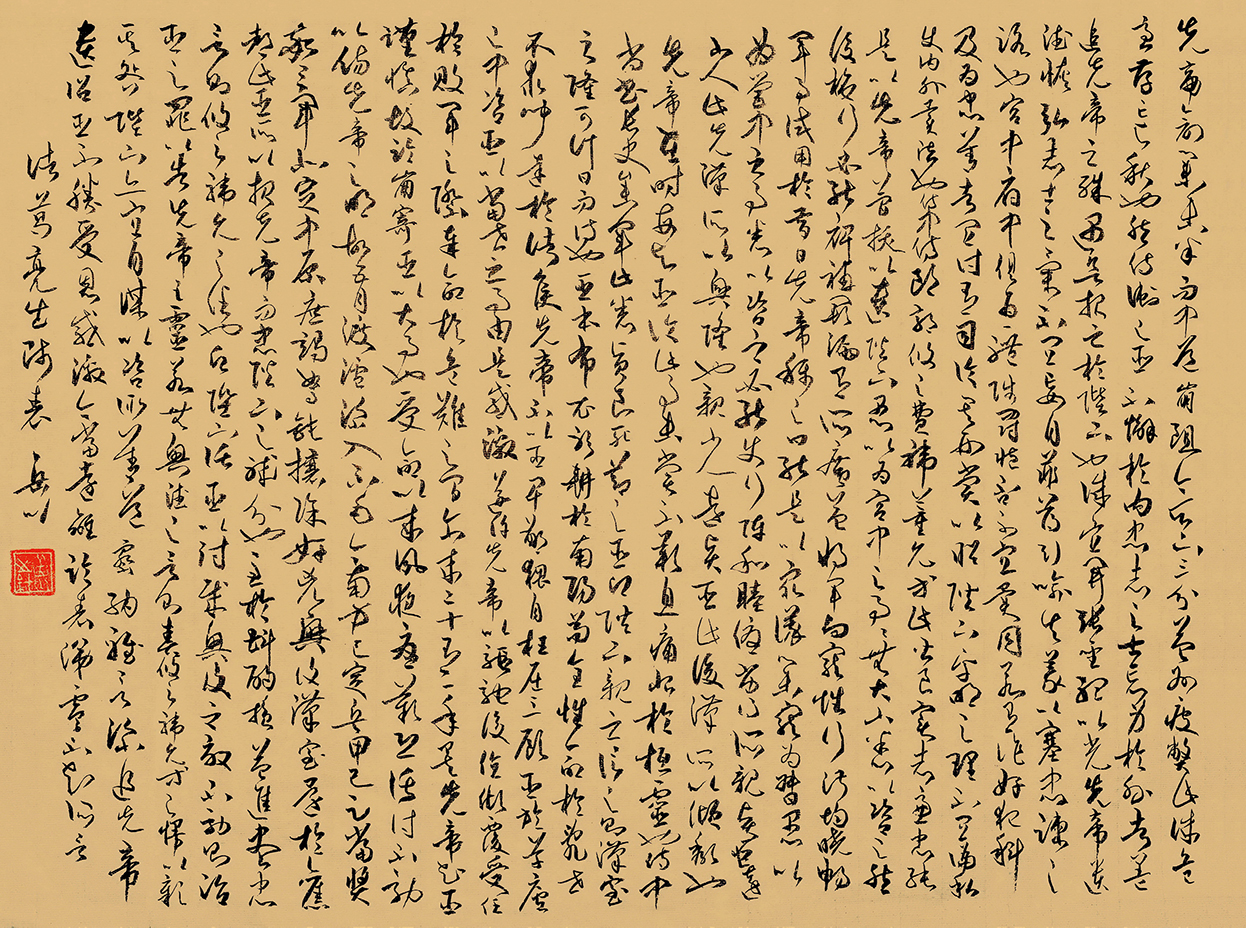 先帝創業未半而中道崩殂今天下三分益州疲弊此誠危
急存亡之秋也然侍衛之臣不懈於內忠志之士忘身於外者蓋
追先帝之殊遇欲報之於陛下也誠宜開張聖聽以光先帝遺
德恢弘志士之氣不宜妄自菲薄引喻失義以塞忠諫之
路也宮中府中俱為一體陟罰臧否不宜異同若有作奸犯科
及為忠善者宜付有司論其刑賞以昭陛下平明之理不宜偏私
使內外異法也侍中侍郎郭攸之費禕董允等此皆良實志慮忠純
是以先帝簡拔以遺陛下愚以為宮中之事事無大小悉以咨之然
後施行必能裨補闕漏有所廣益將軍向寵性行淑均曉暢
軍事試用於昔日先帝稱之曰能是以眾議舉寵為督愚以
為營中之事悉以咨之必能使行陣和睦優劣得所親賢臣遠
小人此先漢所以興隆也親小人遠賢臣此後漢所以傾頹也
先帝在時每與臣論此事未嘗不歎息痛恨於桓靈也侍中
尚書長史參軍此悉貞良死節之臣願陛下親之信之則漢室
之隆可計日而待也臣本布衣躬耕於南陽苟全性命於亂世
不求聞達於諸侯先帝不以臣卑鄙猥自枉屈三顧臣於草廬
之中咨臣以當世之事由是感激遂許先帝以驅馳後值傾覆受任
於敗軍之際奉命於危難之間爾來二十有一年矣先帝知臣
謹慎故臨崩寄臣以大事也受命以來夙夜憂歎恐託付不效
以傷先帝之明故五月渡瀘深入不毛今南方已定兵甲已足當獎
率三軍北定中原庶竭駑鈍攘除奸凶興復漢室還於舊
都此臣所以報先帝而忠陛下之職分也至於斟酌損益進盡忠
言則攸之禕允之任也願陛下託臣以討賊興復之效不效則治
臣之罪以告先帝之靈若無興德之言則責攸之禕允等之慢以彰
其咎陛下亦宜自謀以咨諏善道察納雅言深追先帝
遺詔臣不勝受恩感激今當遠離臨表涕零不知所言
諸葛亮出師表 岳以